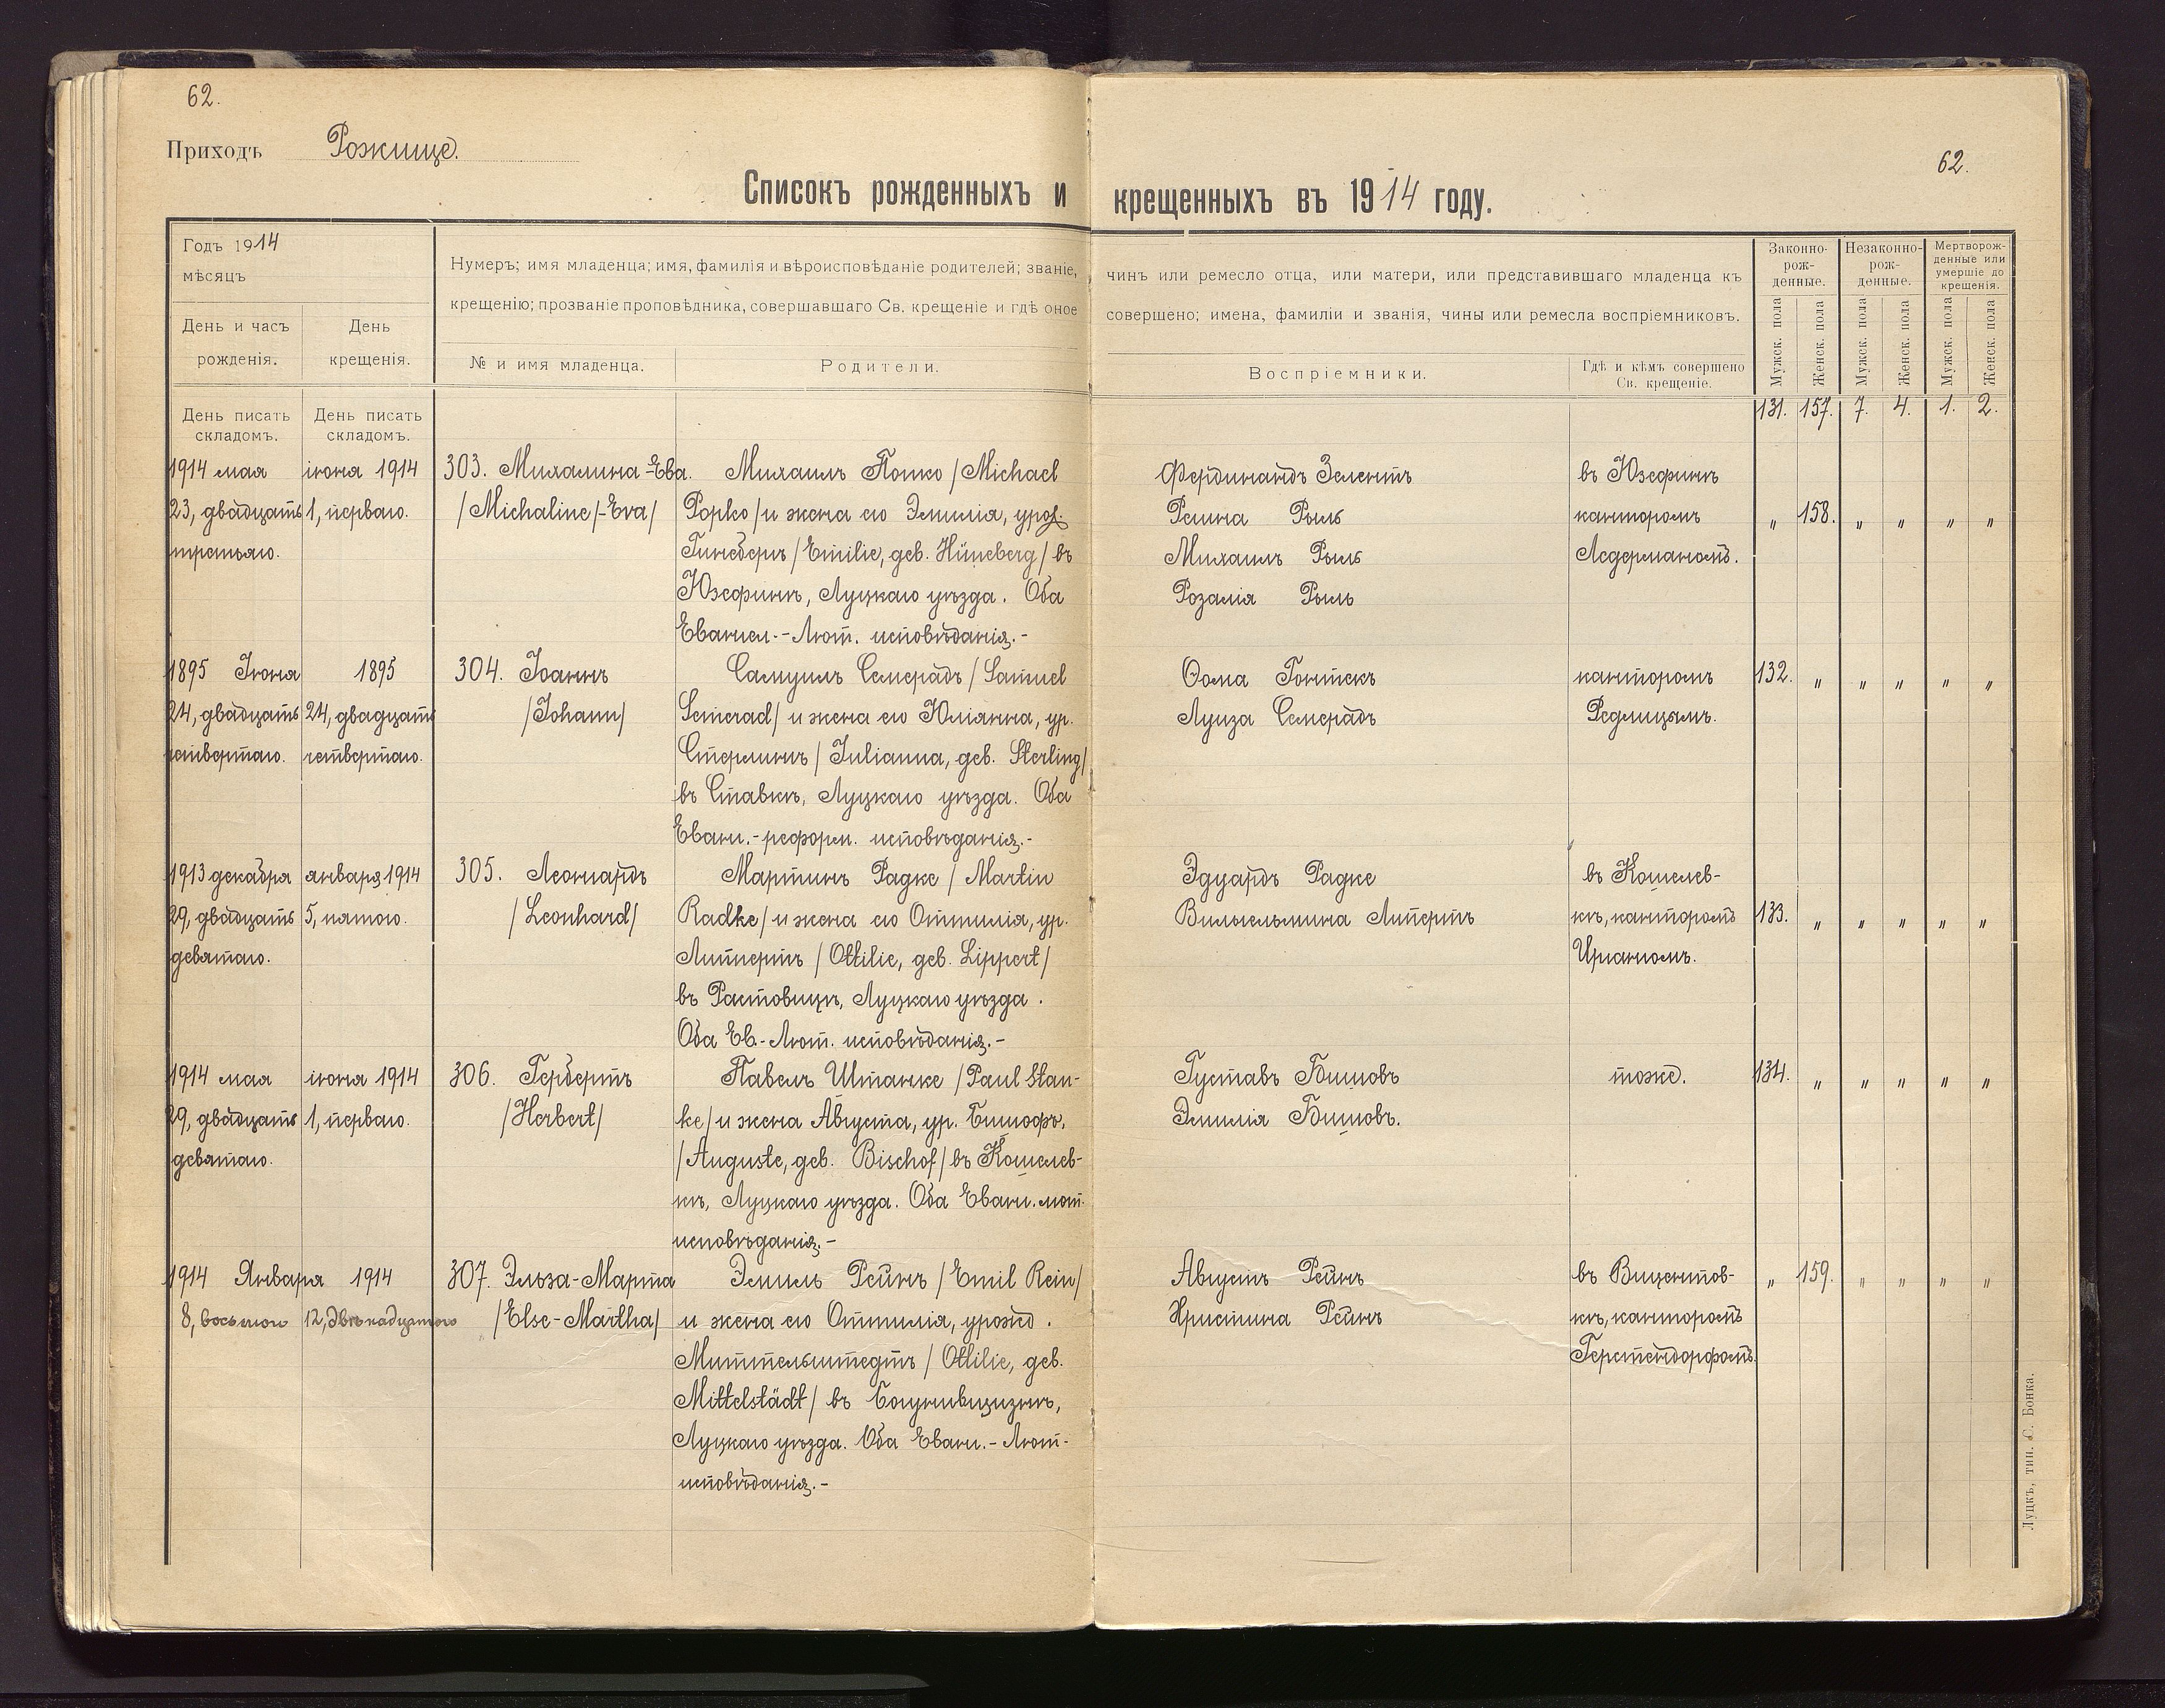 62.
Приходъ Рожище.
62.
Списокъ рожденныхъ и крещенныхъ въ 1914 году.
Годъ 1914
мѣсяцъ
День и часъ
рожденія.
День
крещенія.
Нумеръ; имя младенца; имя, фамилія и вѣроисповѣданіе родителей; званіе, чинъ или ремесло отца, или матери, или представившаго младенца къ
крещенію; прозваніе проповѣдника, совершавшаго Св. крещеніе и гдѣ оное совершено; имена, фамиліи и званія, чины или ремесла воспріемниковъ.
№ и имя младенца.
Родители.
Воспріемники.
Гдѣ и кѣмъ совершено
Св. крещеніе.
Законно-
рож-
денные.
Незаконно-
рож-
денные.
Мертворож-
денные или
умершіе до
крещенія.
Мужск. пола
Женск. пола
Мужск. пола
Женск. пола
Мужск. пола
Женск. пола
День писать
складомъ.
День писать
складомъ.
131. 157. 7. 4. 1. 2.
1914 мая
23, двадцать
третьяго.
іюня 1914
1, перваго.
303. Михалина-Ева.
/Michaline/-Eva/
Михаилъ Попко /Michael
Popko/ и жена его Эмилія, урод.
Гинебергъ /Emilie, geb. Hüneberg/ въ
Юзефинѣ, Луцкаго уѣзда. Оба
Евангел.-Лют. исповѣданія.-
Фердинандъ Зелентъ
Регина Рыль
Михаилъ Рыль
Розалія Рыль
въ Юзефинѣ
канторомъ
Ледерманомъ.
" 158. " " " "
1895 Іюня
24, двадцать
четвертаго.
1895
24, двадцать
четвертаго.
304. Іоаннъ
/Johann/
Самуилъ Семерадъ /Samuel
Semerad/ и жена его Юліанна, ур.
Стерлингъ /Julianna, geb. Sterling/
въ Ставкѣ, Луцкаго уѣзда. Оба
Еванг.-реформ. исповѣданія.-
Ѳома Гонтекъ
Луиза Семерадъ
канторомъ
Редлицымъ.
132. " " " " "
1913 декабря
29, двадцать
девятаго.
января 1914
5, пятого.
305. Леонгардъ
/Leonhard/
Мартинъ Радке /Martin
Radke/ и жена его Оттилія, ур.
Липпертъ /Ottilie, geb. Lippert/
въ Растовицѣ, Луцкаго уѣзда.
Оба Ев.-Лют. исповѣданія.-
Эдуардъ Радке
Вильгельмина Липертъ
въ Кошелев-
кѣ, канторомъ
133. " " " " "
1914 мая
29, двадцать
девятаго.
іюня 1914
1, перваго.
306. Гербертъ
/Herbert/
Павелъ Штанке /Paul Stan-
ke/ и жена Августа, ур. Бишофъ,
/Auguste, geb. Bischof/ въ Кошелев-
кѣ, Луцкаго уѣзда. Оба Еванг. лют.
исповѣданія.-
Густавъ Бишовъ
Эмилія Бишовъ.
тоже.
134. " " " " "
1914 Января
8, восьмого
1914
12, двѣнадцатого
307. Эльза-Марта
/Else-Martha/
Эмиль Рейнъ /Emil Rein/
и жена его Оттилія, урожд.
Миттельштедтъ /Ottilie, geb.
Mittelstädt/ въ
Луцкаго уѣзда. Оба Еванг.-Лют-
исповѣданія.-
Августъ Рейнъ
Христина Рейнъ
въ Вицентов-
кѣ, канторомъ
Герстендорфомъ.
" 159. " " " "
Луцкъ, тип. С. Бонка.